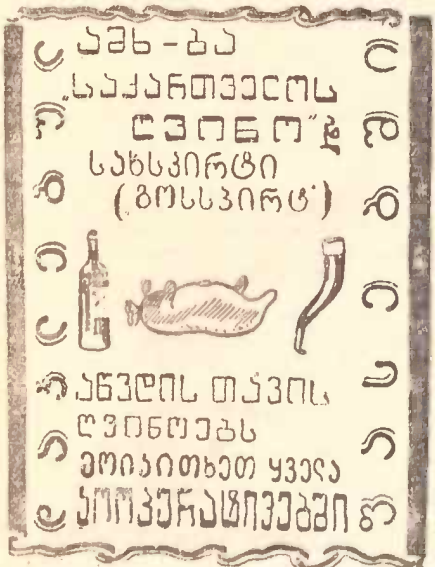 ამხ-ბა
„საქართველოს
ღვინო“
სახსპირტი
(გოსსპირტ')
აწვდის თავის
ღვინოებს
მოიკითხეთ ყველა
კოოპერატივებში